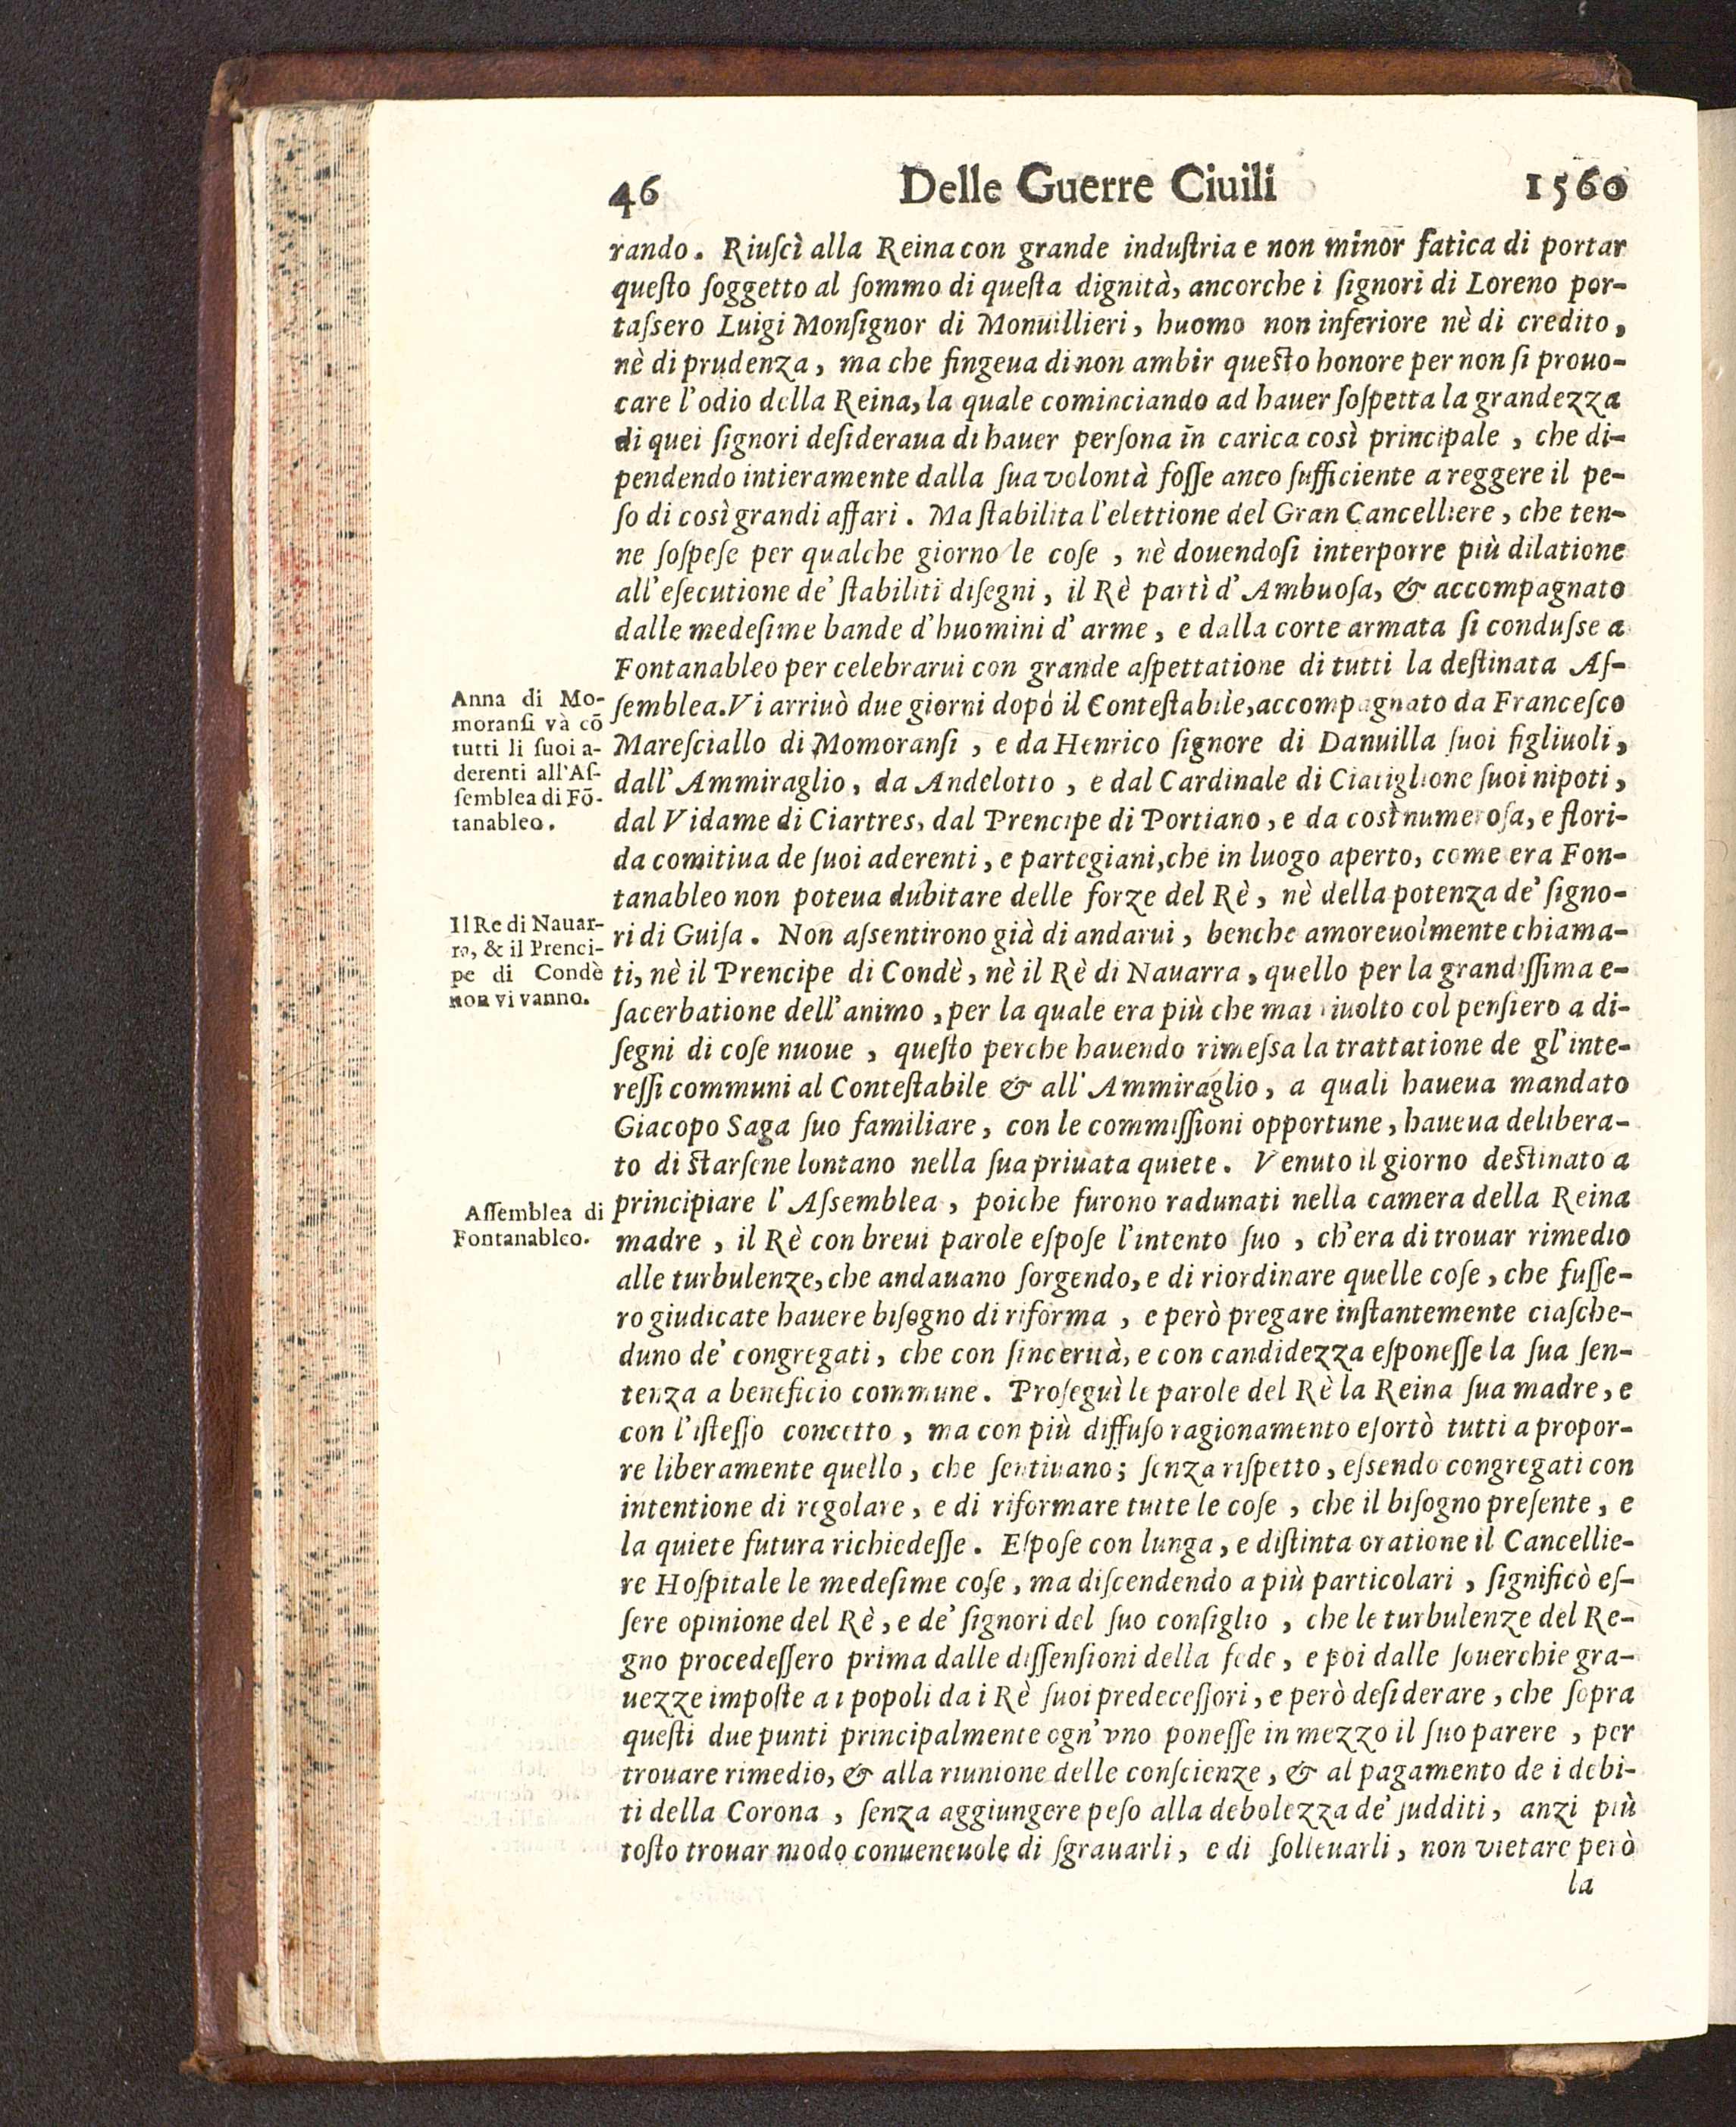 46 Delle Guerre Ciuili 1560
rando. Riuſcì alla Reina con grande induſtria e non minor fatica di portar
queſto ſoggetto al ſommo di queſta dignità, ancorche i ſignori di Loreno por-
taſsero Luigi Monſignor di Monuillieri, huomo non inferiore nè di credito,
nè di prudenza, ma che fingeua di non ambir queſto honore per non ſi prouo-
care l'odio della Reina, la quale cominciando ad hauer ſoſpetta la grandezza
di quei ſignori deſideraua di hauer perſona in carica così principale, che di-
pendendo intieramente dalla ſua volontà foſſe anco ſufficiente a reggere il pe-
ſo di così grandi affari. Ma ſtabilita l'elettione del Gran Cancelliere, che ten-
ne ſoſpeſe per qualche giorno le coſe, nè douendoſi interporre più dilatione
all'eſecutione de' ſtabiliti diſegni, il Rè partì d'Ambuoſa, & accompagnato
dalle medeſime bande d'huomini d'arme, e dalla corte armata ſi conduſse a
Fontanableo per celebrarui con grande aſpettatione di tutti la deſtinata Aſ-
Anna di Mo-
moranſi và cō
tutti li ſuoi a-
derenti all'Aſ-
ſemblea di Fō-
tanableo.
ſemblea. Vi arriuò due giorni dopò il Conteſtabile, accompagnato da Franceſco
Mareſciallo di Momoranſi, e da Henrico ſignore di Danuilla ſuoi figliuoli,
dall'Ammiraglio, da Andelotto, e dal Cardinale di Ciatiglione ſuoi nipoti,
dal Vidame di Ciartres, dal Prencipe di Portiano, e da così numeroſa, e flori-
da comitiua de ſuoi aderenti, e partegiani, che in luogo aperto, come era Fon-
tanableo non poteua dubitare delle forze del Rè, nè della potenza de' ſigno-
Il Re di Nauar-
ra, & il Prenci-
pe di Condè
non vi vanno.
ri di Guiſa. Non aſsentirono già di andarui, benche amoreuolmente chiama-
ti, nè il Prencipe di Condè, nè il Rè di Nauarra, quello per la grandiſſima e-
ſacerbatione dell'animo, per la quale era più che mai riuolto col penſiero a di-
ſegni di coſe nuoue, queſto perche hauendo rimeſsa la trattatione de gl'inte-
reſſi communi al Conteſtabile & all'Ammiraglio, a quali haueua mandato
Giacopo Saga ſuo familiare, con le commiſſioni opportune, haueua delibera-
to di ſtarſene lontano nella ſua priuata quiete. Venuto il giorno deſtinato a
Aſſemblea di
Fontanableo.
principiare l'Aſsemblea, poiche furono radunati nella camera della Reina
madre, il Rè con breui parole eſpoſe l'intento ſuo, ch'era di trouar rimedio
alle turbulenze, che andauano ſorgendo, e di riordinare quelle coſe, che fuſſe-
ro giudicate hauere biſogno di riforma, e però pregare inſtantemente ciaſche-
duno de' congregati, che con ſincerità, e con candidezza eſponeſſe la ſua ſen-
tenza a beneficio commune. Proſeguì le parole del Rè la Reina ſua madre, e
con l'iſteſſo concetto, ma con più diffuſo ragionamento eſortò tutti a propor-
re liberamente quello, che ſentiuano; ſenza riſpetto, eſsendo congregati con
intentione di regolare, e di riformare tutte le coſe, che il biſogno preſente, e
la quiete futura richiedeſſe. Eſpoſe con lunga, e diſtinta oratione il Cancellie-
re Hoſpitale le medeſime coſe, ma diſcendendo a più particolari, ſignificò eſ-
ſere opinione del Rè, e de' ſignori del ſuo conſiglio, che le turbulenze del Re-
gno procedeſſero prima dalle diſſenſioni della fede, e poi dalle ſouerchie gra-
uezze impoſte a i popoli da i Rè ſuoi predeceſſori, e però deſiderare, che ſopra
queſti due punti principalmente ogn'vno poneſſe in mezzo il ſuo parere, per
trouare rimedio, & alla riunione delle conſcienze, & al pagamento de i debi-
ti della Corona, ſenza aggiungere peſo alla debolezza de' ſudditi, anzi più
toſto trouar modo conueneuole di ſgrauarli, e di ſolleuarli, non vietare però
la